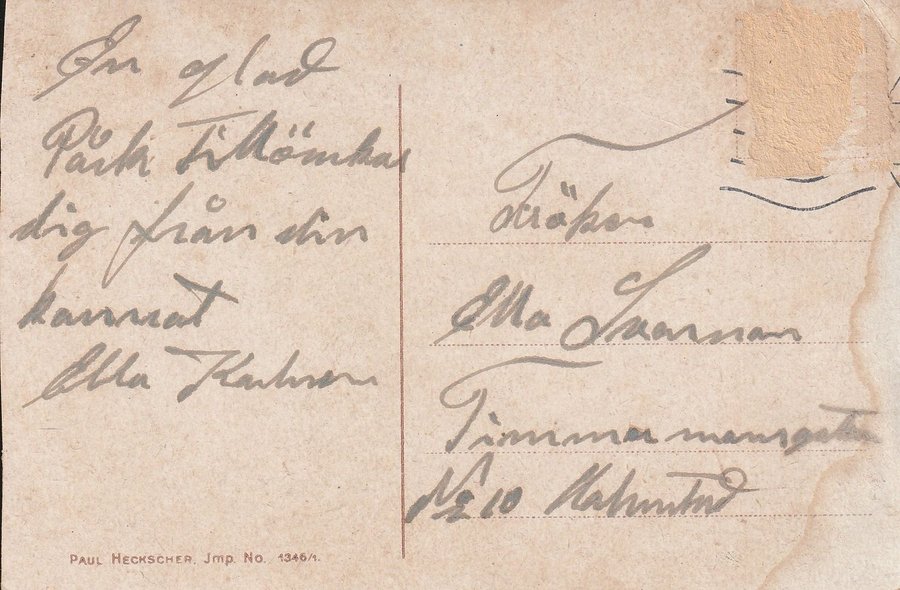 En glad
Påsk Tillönskas
dig från din
kamrat
Ella Karlsson
PAUL HECKSCHER, Jmp. No. 1346/1.
Fröken
Ella
Timmermansgatan
No 10 Halmstad